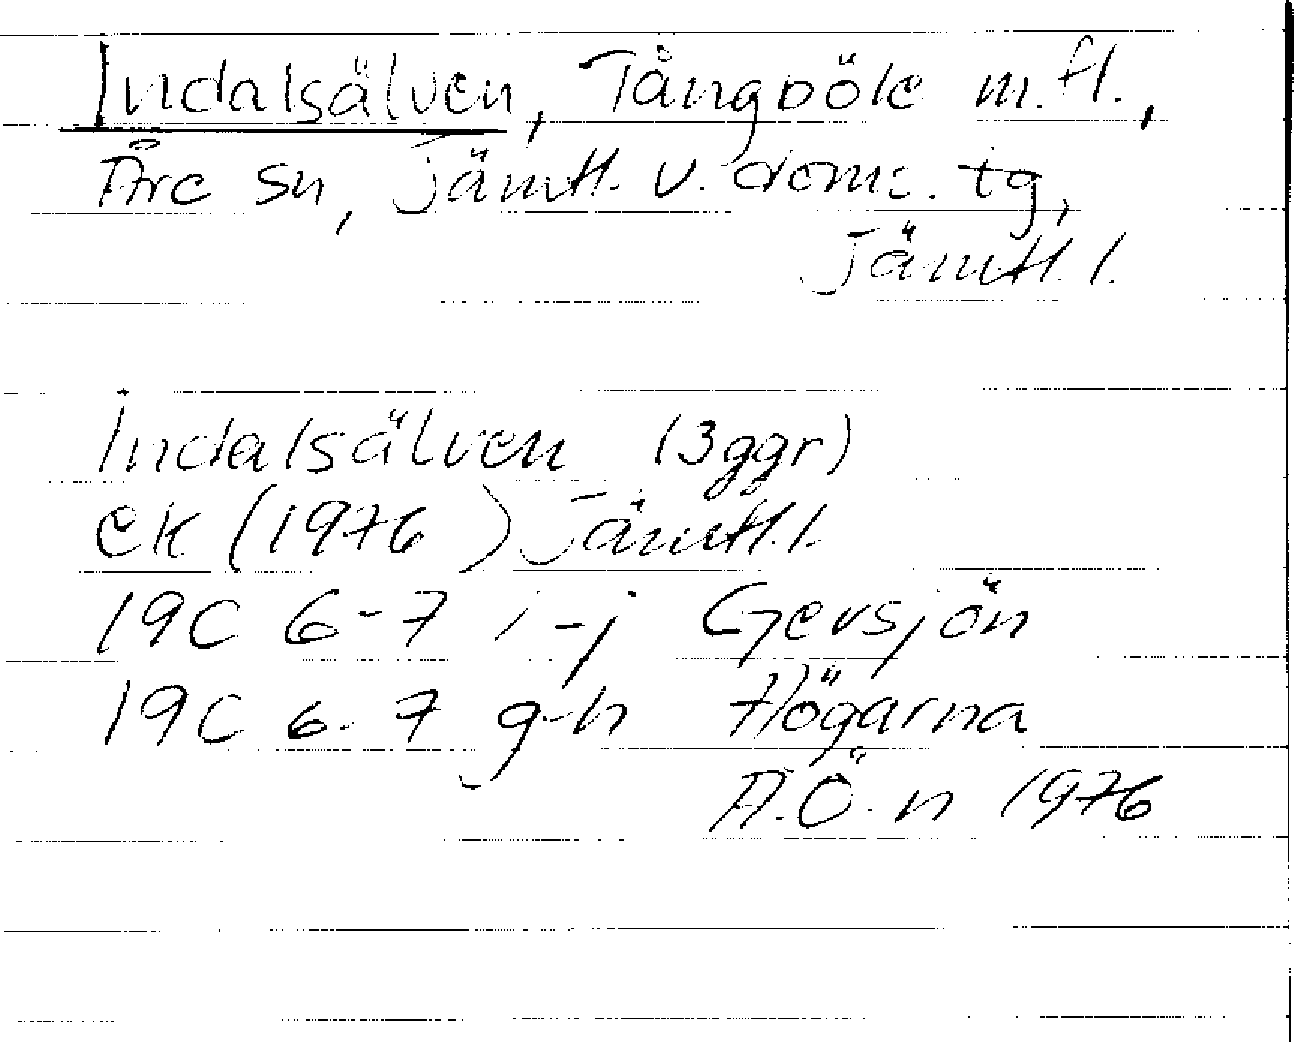 Indalsälven, Tångböle m.fl.,
Åre sn, Jämtl. v. doms. tg,
Jämtl. l.
Indalsälven (3ggr)
EK (1976) Jämtl.l.
19C 6-7 i-j Gevsjön
19C 6-7 g-h Högarna
A.Ö-n 1976